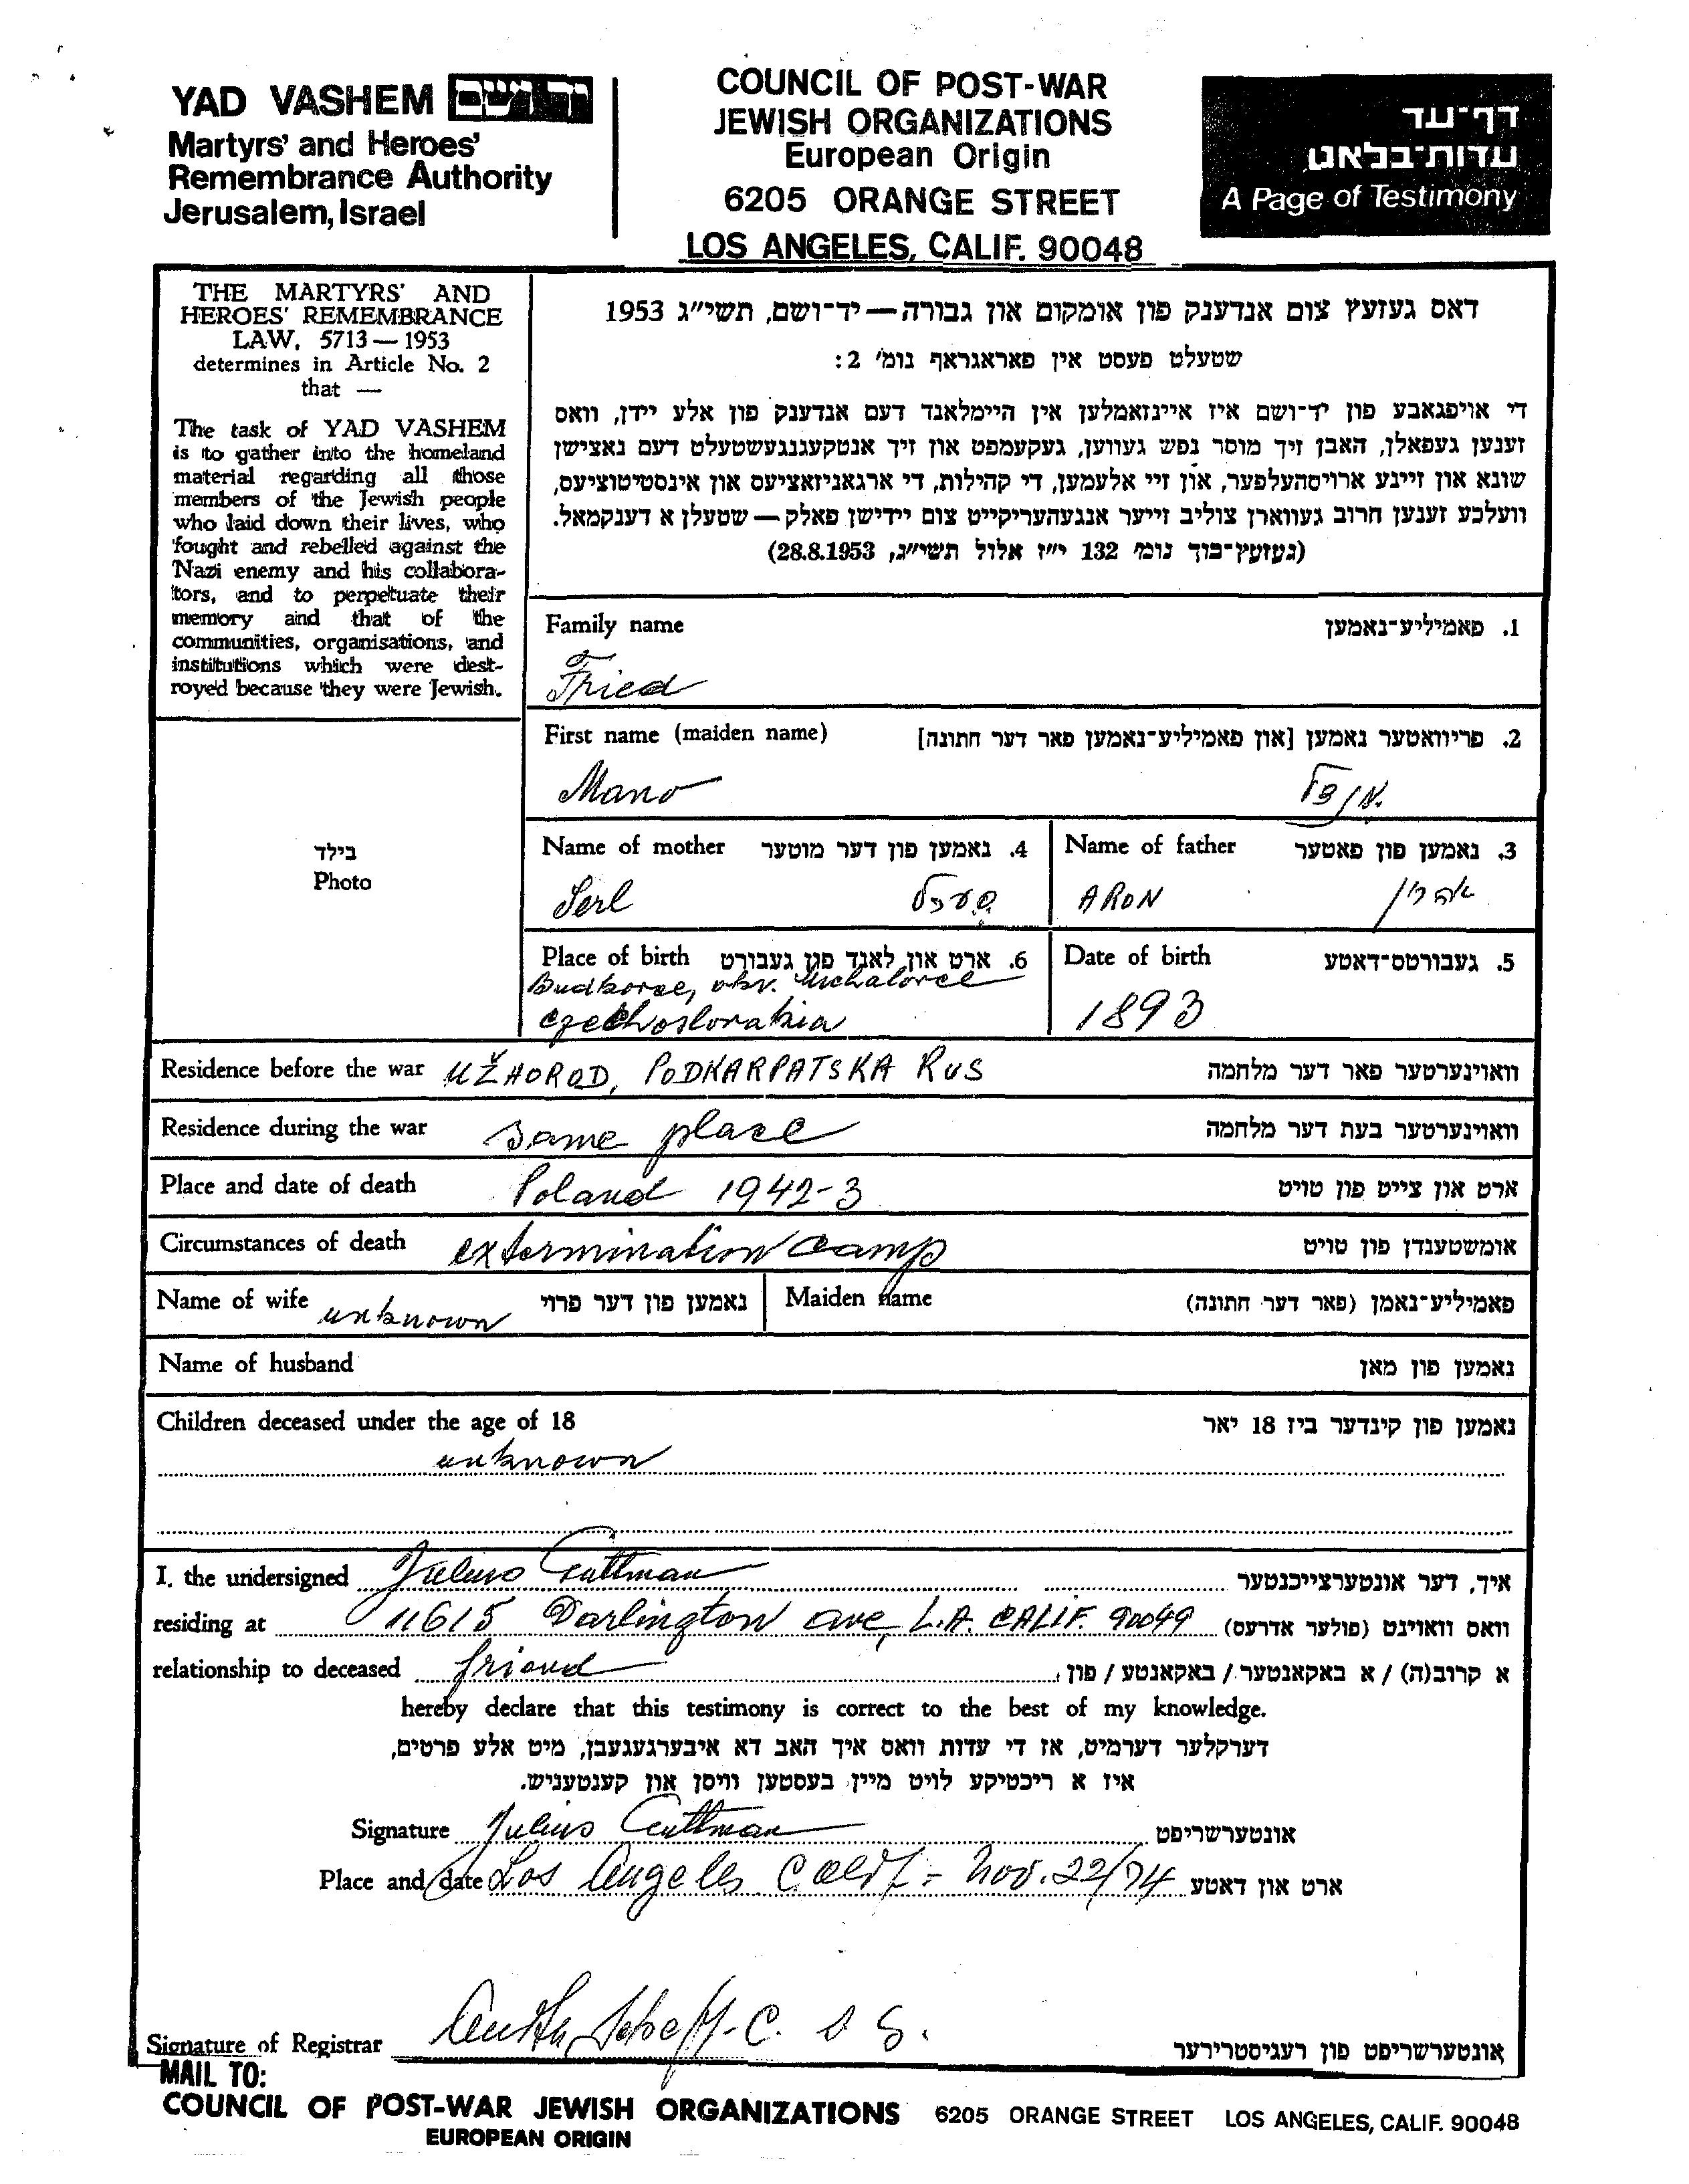 YAD VASHEM יד ושם
Martyrs' and Heroes'
Remembrance Authority
Jerusalem, Israel
COUNCIL OF POST-WAR
JEWISH ORGANIZATIONS
European Origin
6205 ORANGE STREET
LOS ANGELES, CALIF. 90048
דף־עד
עדות־בלאט
A Page of Testimony
THE MARTYRS' AND
HEROES' REMEMBRANCE
LAW, 5713 — 1953
determines in Article No. 2
that —
The task of YAD VASHEM
is to gather into the homeland
material regarding all those
members of the Jewish people
who laid down their lives, who
fought and rebelled against the
Nazi enemy and his collabora-
tors, and to perpetuate their
memory and that of the
communities, organisations, and
institutions which were dest-
royed because they were Jewish.
דאס געזעץ צום אנדענק פון אומקום און גבורה — יד־ושם, תשי״ג 1953
שטעלט פעסט אין פאראגראף נומ׳ 2:
די אויפגאבע פון יד־ושם איז איינזאמלען אין היימלאנד דעם אנדענק פון אלע יידן, וואס
זענען געפאלן, האבן זיך מוסר נפש געווען, געקעמפט און זיך אנטקעגנגעשטעלט דעם נאצישן
שונא און זיינע ארויסהעלפער, און זיי אלעמען, די קהילות, די ארגאניזאציעס און אינסטיטוציעס,
וועלכע זענען חרוב געווארן צוליב זייער אנגעהעריקייט צום יידישן פאלק — שטעלן א דענקמאל.
(געזעץ־בוך נומ׳ 132 י״ז אלול תשי״ג, 28.8.1953)
Family name 1. פאמיליע־נאמען
Fried
First name (maiden name) 2. פריוואטער נאמען [און פאמיליע־נאמען פאר דער חתונה]
Mano
Name of mother 4. נאמען פון דער מוטער Name of father 3. נאמען פון פאטער
Serl סערל ARON אהרון
Place of birth 6. ארט און לאנד פון געבורט Date of birth 5. געבורטס־דאטע
Budkovce, okr. Michalovce
Czechoslovakia 1893
בילד
Photo
Residence before the war UŽHOROD, PODKARPATSKA RUS וואוינערטער פאר דער מלחמה
Residence during the war same place וואוינערטער בעת דער מלחמה
Place and date of death Poland 1942-3 ארט און צייט פון טויט
Circumstances of death extermination camp אומשטענדן פון טויט
Name of wife unknown נאמען פון דער פרוי Maiden name פאמיליע־נאמן (פאר דער חתונה)
Name of husband נאמען פון מאן
Children deceased under the age of 18 נאמען פון קינדער ביז 18 יאר
unknown
I, the undersigned Julius Guttman איך, דער אונטערצייכנטער
residing at 11615 Darlington ave, L.A. CALIF. 90049 וואס וואוינט (פולער אדרעס)
relationship to deceased friend א קרוב(ה) / א באקאנטער / באקאנטע / פון
hereby declare that this testimony is correct to the best of my knowledge.
דערקלער דערמיט, אז די עדות וואס איך האב דא איבערגעגעבן, מיט אלע פרטים,
איז א ריכטיקע לויט מיין בעסטען וויסן און קענטעניש.
Signature Julius Guttman אונטערשריפט
Place and date Los Angeles Calif - Nov. 22/74 ארט און דאטע
Signature of Registrar אונטערשריפט פון רעגיסטרירער
MAIL TO:
COUNCIL OF POST-WAR JEWISH ORGANIZATIONS 6205 ORANGE STREET LOS ANGELES, CALIF. 90048
EUROPEAN ORIGIN